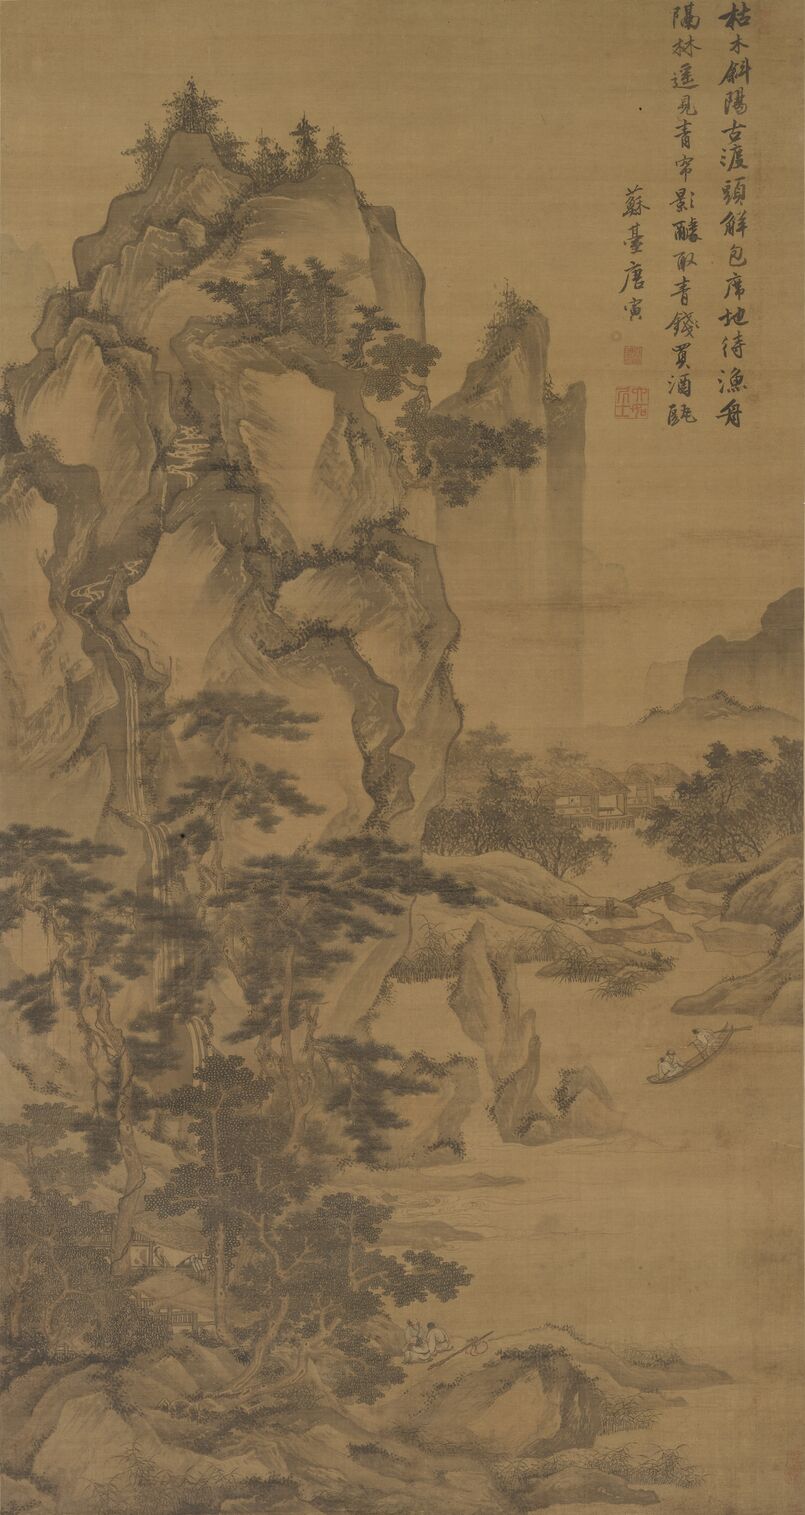 枯木斜陽古渡頭解包席地待漁舟
隔林遥見青帘影醵取青錢買酒甌
蘇臺唐寅